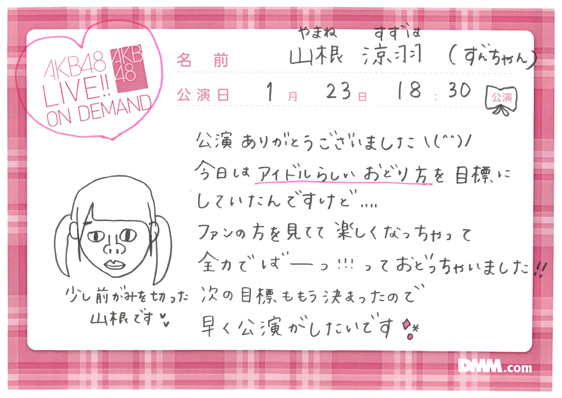 AKB48
LIVE!!
ON DEMAND
AKB
48
やまね すずは
名前 山根 涼羽 (ずんちゃん)
公演日 1月 23日 18:30 公演
公演ありがとうございました\(^^)/
今日はアイドルらしいおどり方を目標に
していたんですけど....
ファンの方を見てて楽しくなっちゃって
全力でばーっ!!!っておどっちゃいました!!
次の目標ももう決まったので
早く公演がしたいです
少し前がみを切った
山根です
DMM.com